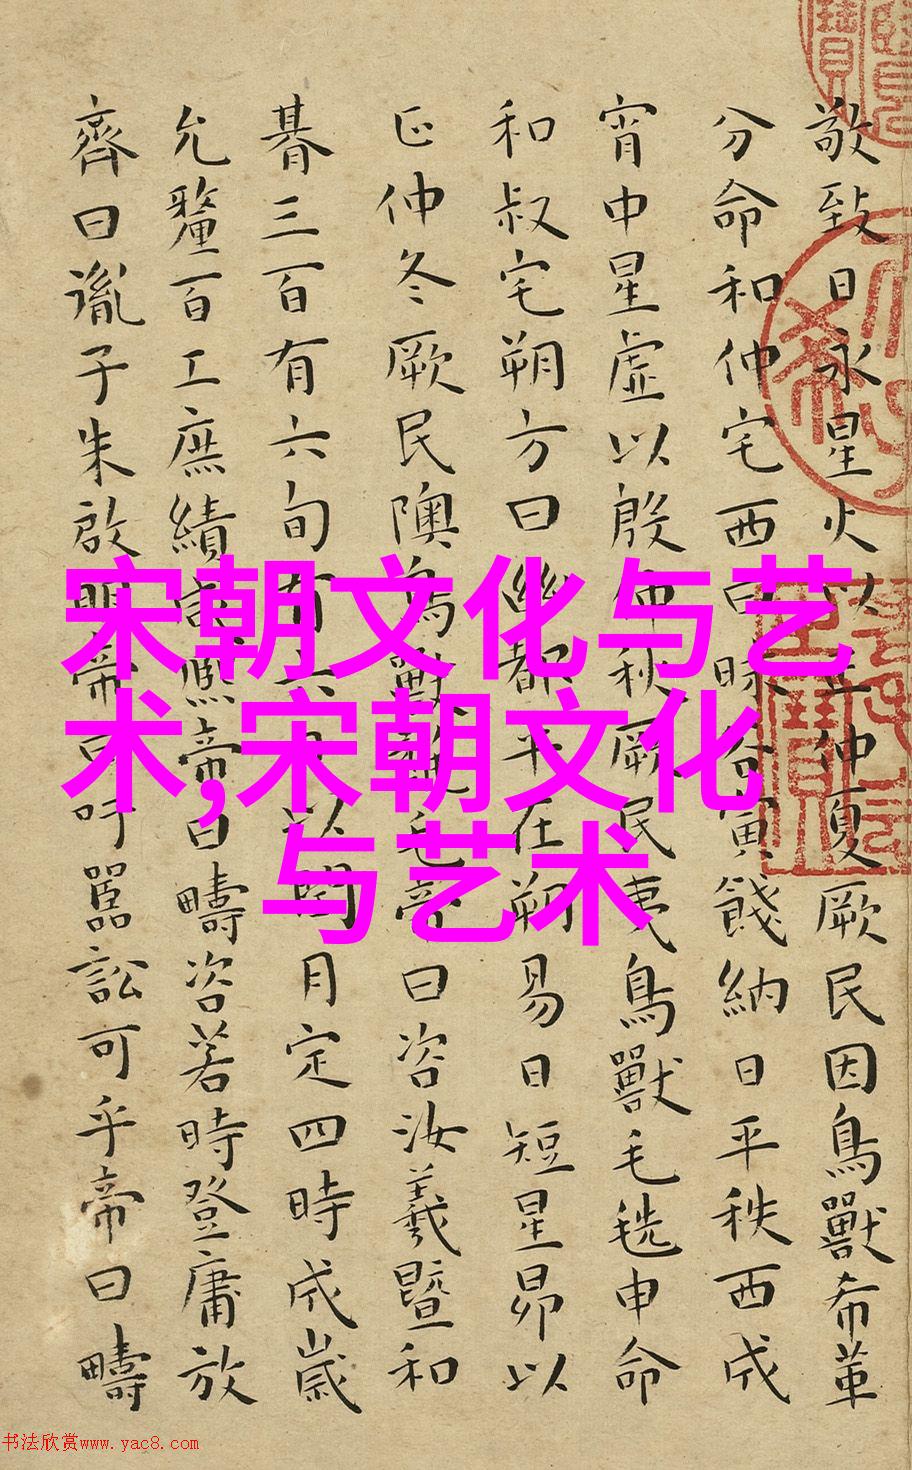 敬致日永星火以正仲夏厥民因鳥獸希革
分命和仲宅西曰昧谷寅餞納日平秩西成
宵中星虛以殷仲秋厥民夷鳥獸毛毨申命
和叔宅朔方曰幽都平在朔易日短星昴以
正仲冬厥民隩鳥獸氄毛帝曰咨汝羲暨和
朞三百有六旬有六日以閏月定四時成歲
允釐百工庶績咸熙帝曰疇咨若時登庸放
齊曰胤子朱啟明帝曰吁嚚訟可乎帝曰疇
宋朝文化与艺
术,宋朝文化
与艺术
书法欣赏www.yac8.com